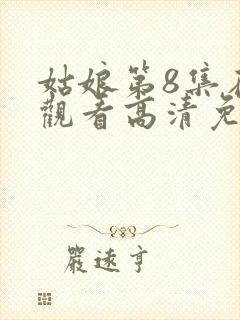 姑娘第8集在
觀看高清免
嚴遠亨